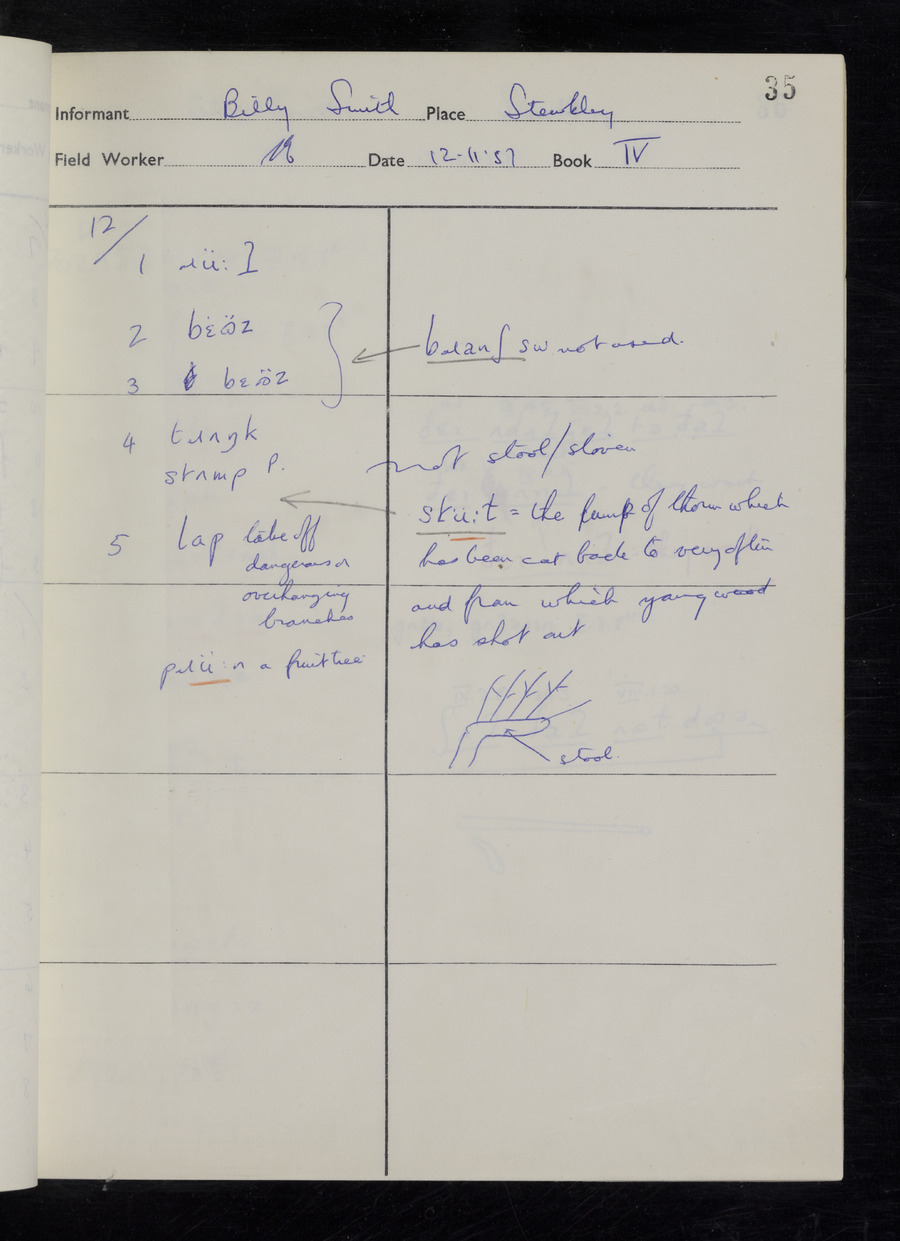 35
Informant Billy Smith Place Stewkley
Field Worker Date 12-11-57 Book IV
12/
1
2 bɛ̇öz
3 bɛöz
balanʃ sw not used.
4 trʌŋk
stʌmp p.
not stool/stoven
stü:t = the lump of thorn which
has been cut back to very often
and from which young wood
has shot out
5 lap take off
dangerous or
overhanging
branches
pɹü:n a fruit tree
stool.